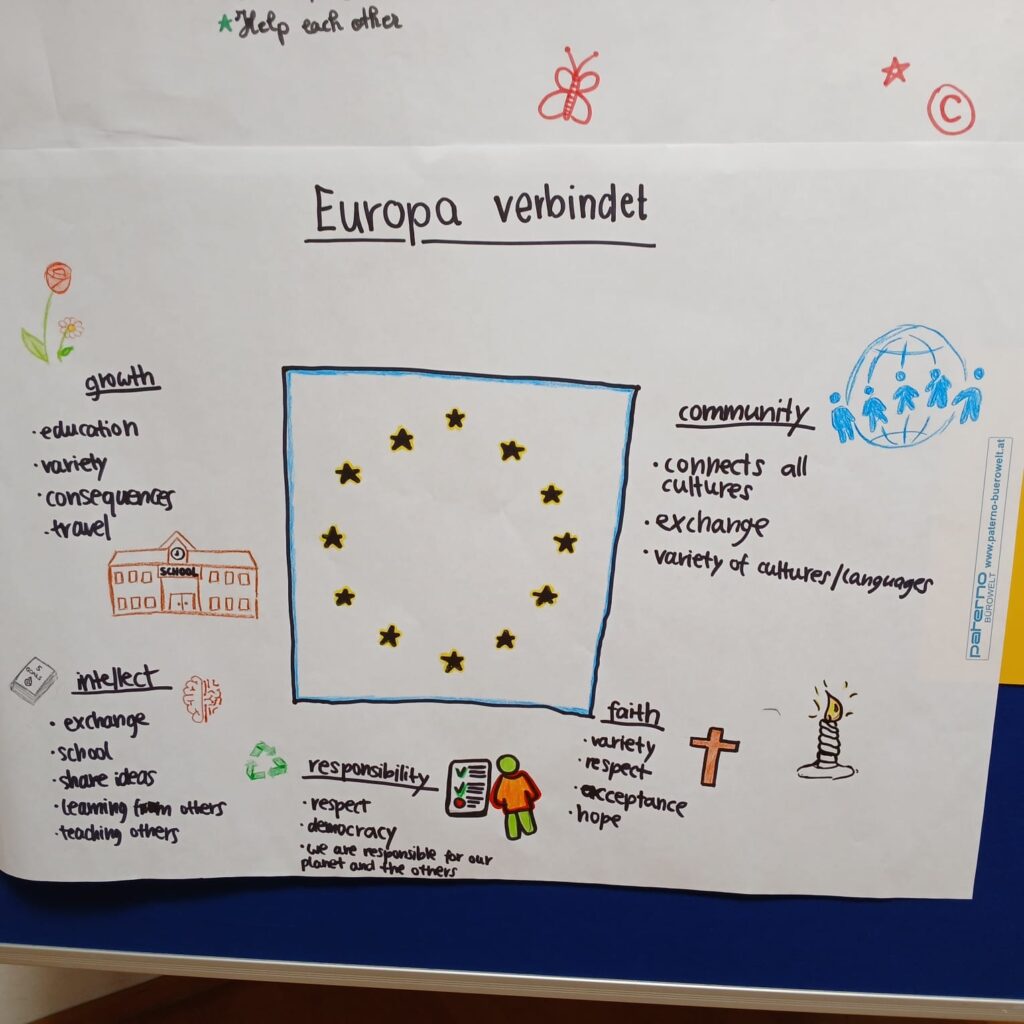 ★Help each other
©
Europa verbindet
growth
•education
•variety
•consequences
•travel
SCHOOL
community
•connects all
cultures
•exchange
•variety of cultures/languages
paterno
BÜROWELT
www.paterno-buerowelt.at
intellect
•exchange
•school
•share ideas
•learning from others
•teaching others
responsibility
•respect
•democracy
•we are responsible for our
planet and the others
faith
•variety
•respect
•acceptance
•hope